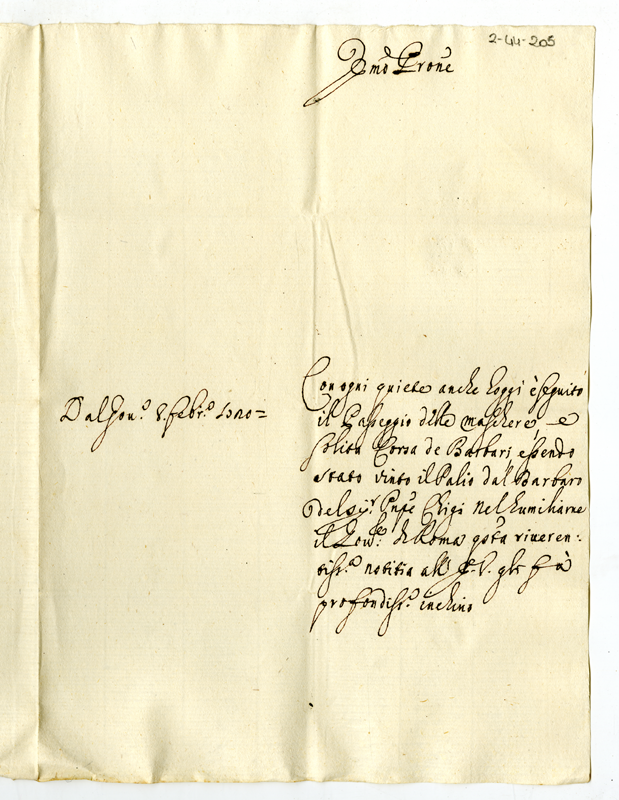 2-44-205
Emo Prone
Dal Gou.º 8. Febr.º 1720=
Con ogni quiete anche hoggi è seguito
il Passeggio delle maschere, e
solita Corsa de Barbari, essendo
stato vinto il Palio dal Barbaro
del Sig.r Pnpe Chigi nel humiliarne
il Gour.e di Roma qsta riueren:
tiss.ª notitia all' E. V. gli fà
profondiss.º inchino